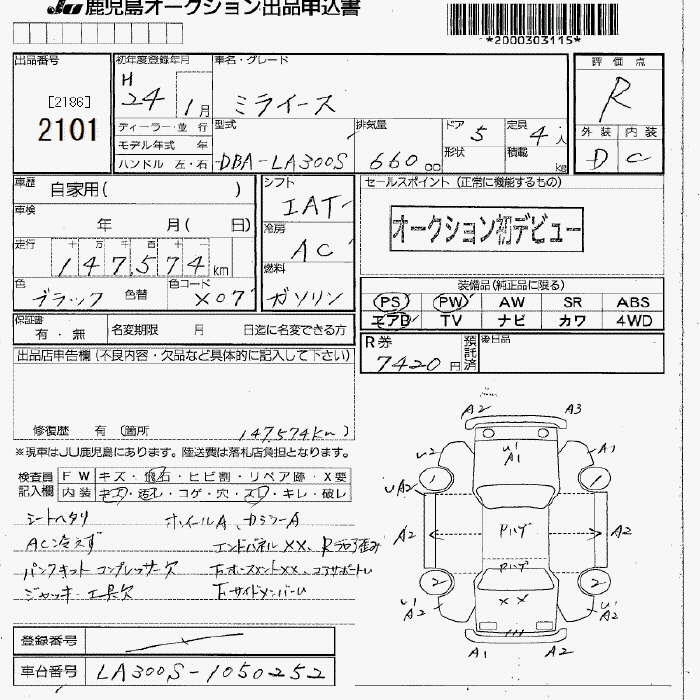 JU 鹿児島オークション出品申込書
*2000303115*
出品番号
[2186]
2101
初年度登録年月
H 24 1月
ディーラー・並 行
モデル年式 年
ハンドル 左・右
車名・グレード
ミライース
型式
DBA-LA300S
排気量
660 cc
ドア 5
形状
定員 4人
積載 kg
評価点
R
外装 内装
D C
車歴 自家用( )
車検 年 月( 日)
走行 十 万 千 百 十 一
147,574 km
色 ブラック 色替 色コード X07
シフト IAT
冷房 AC
燃料 ガソリン
セールスポイント (正常に機能するもの)
オークション初デビュー
装備品(純正品に限る)
PS PW AW SR ABS
エアB TV ナビ カワ 4WD
保証書 有・無 名変期限 月 日迄に名変できる方
R券 7420円 預託済 後日品
出品店申告欄(不良内容・欠品など具体的に記入して下さい)
修復歴 有 (箇所 147,574km)
※現車はJU鹿児島にあります。陸送費は落札店負担となります。
検査員記入欄
FW キズ・飛石・ヒビ割・リペア跡・X要
内装 キズ・汚レ・コゲ・穴・スレ・キレ・破レ
シートヘタリ ホイールA、カラフーA
AC冷えず エンドパネルXX、
パンクキット コンプレッサー欠 コアサポートU
ジャッキー工具欠 下サイドメンバーU
A2 A3
U2 U'A1 A1
1 1
UA2
A2 Pハゲ A2
Pハゲ
2 2
U'A2 XX U'A2
A1 A2
登録番号
車台番号 LA300S-1050252